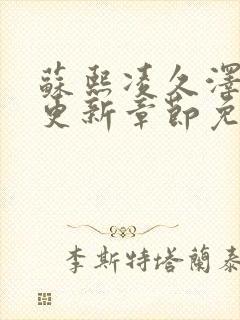 蘇熙凌久澤
更新章節免
李斯特塔蘭泰